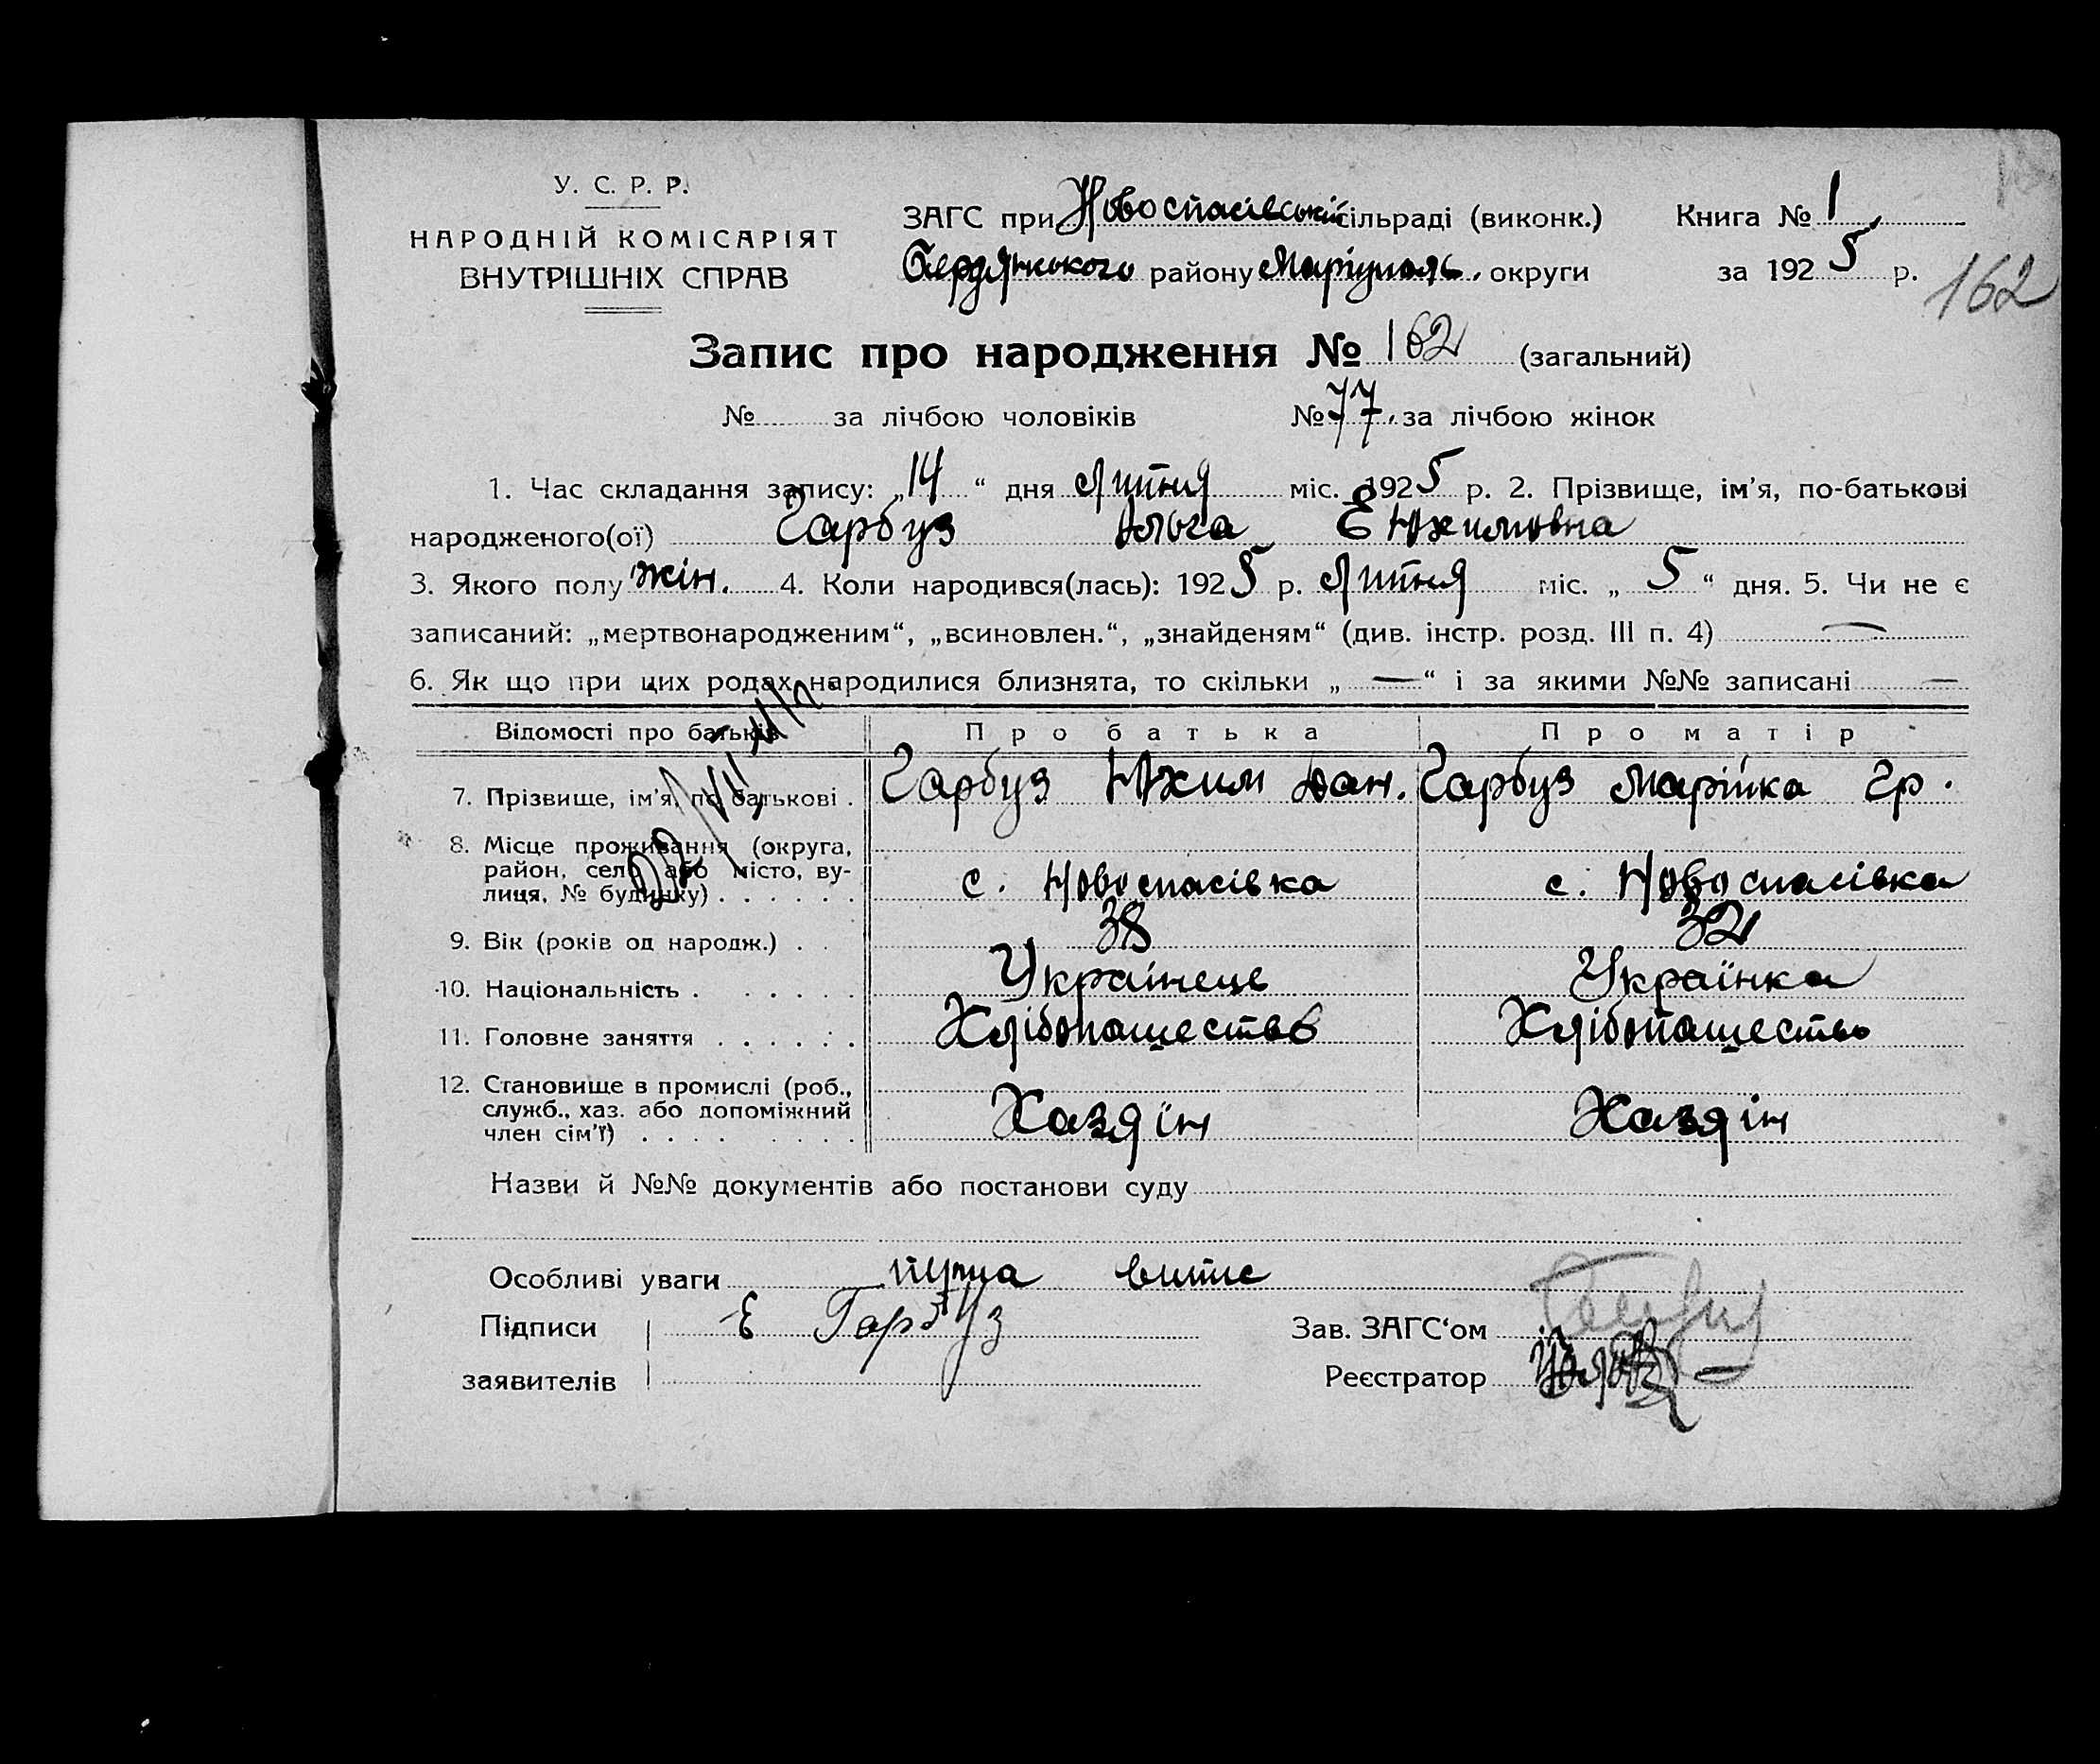 У. С. Р. Р.
НАРОДНІЙ КОМІСАРІЯТ
ВНУТРІШНІХ СПРАВ
ЗАГС при Новоспасівській сільраді (виконк.)
Книга № 1
Бердянського району Маріуполь. округи
за 1925 р.
162
Запис про народження № 162 (загальний)
№ за лічбою чоловіків № 77. за лічбою жінок
1. Час складання запису: „14“ дня Липня міс. 1925 р. 2. Прізвище, ім'я, по-батькові
народженого(ої) Гарбуз Ольга Єюхимовна
3. Якого полу жін. 4. Коли народився(лась): 1925 р. Липня міс. „5“ дня. 5. Чи не є
записаний: „мертвонародженим“, „всиновлен.“, „знайденям“ (див. інстр. розд. III п. 4) —
6. Як що при цих родах народилися близнята, то скільки „—“ і за якими №№ записані —
Відомості про батьків Про батька Про матір
7. Прізвище, ім'я, по батькові . Гарбуз Юхим Дан. Гарбуз Марійка Гр.
8. Місце проживання (округа,
район, село або місто, ву-
лиця, № будинку) . . . . . . с. Новоспасівка с. Новоспасівка
9. Вік (років од народж.) . . 38 32
10. Національність . . . . . . Українець Українка
11. Головне заняття . . . . . . Хлібопашество Хлібопашество
12. Становище в промислі (роб.,
служб., хаз. або допоміжний
член сім'ї) . . . . . . . . Хазяїн Хазяін
Назви й №№ документів або постанови суду
Особливі уваги перша витис
Підписи Є Гарбуз Зав. ЗАГС‘ом
заявителів Реєстратор